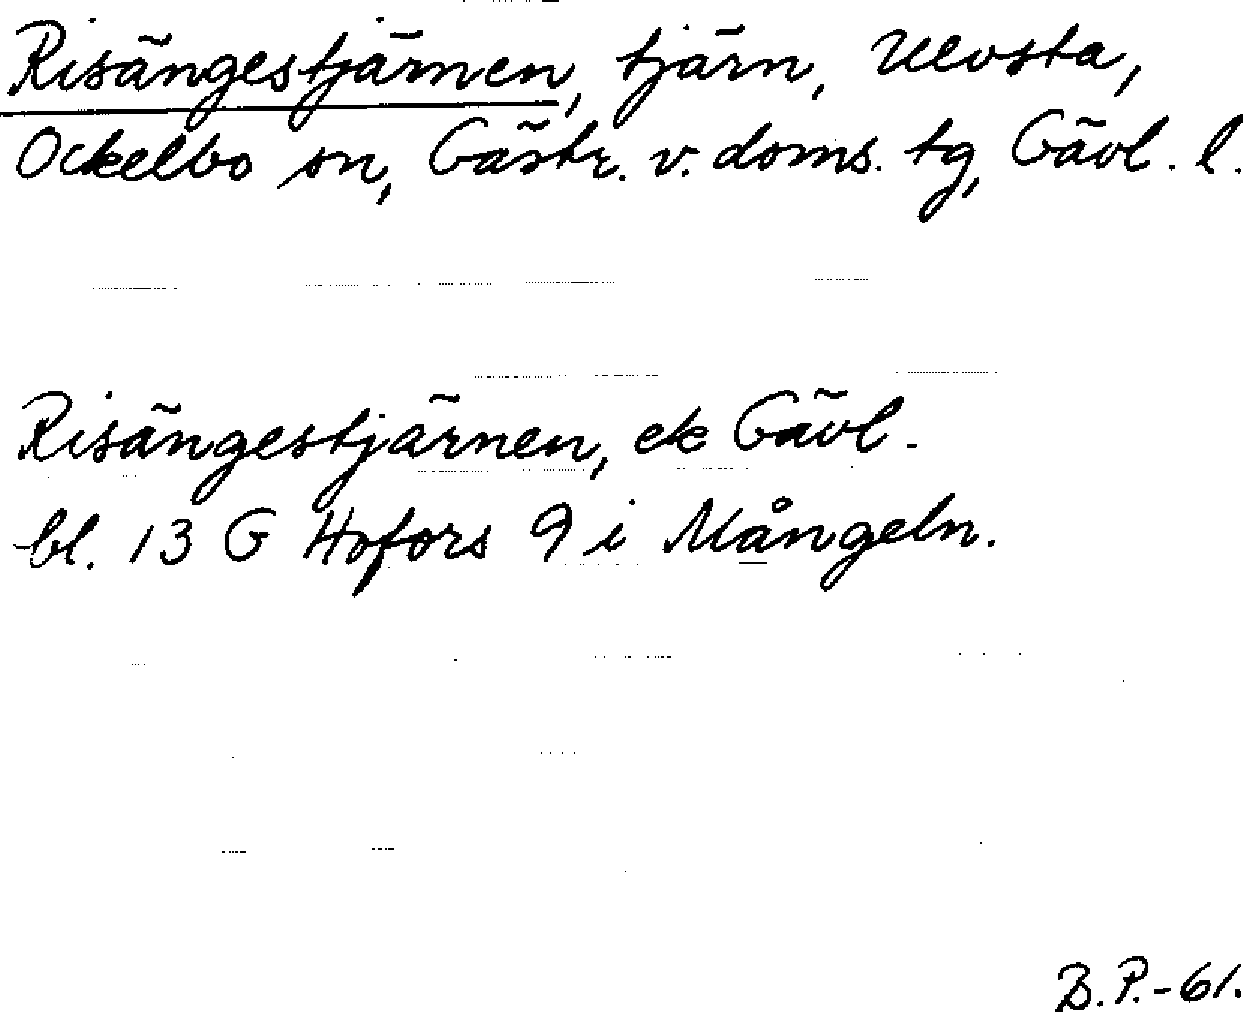 Risängestjärnen, tjärn, Ulvsta,
Ockelbo sn, Gästr. v. doms. tg, Gävl. l.
Risängestjärnen, ek Gävl.
bl. 13 G Hofors 9 i Mångeln.
B.P.-61.